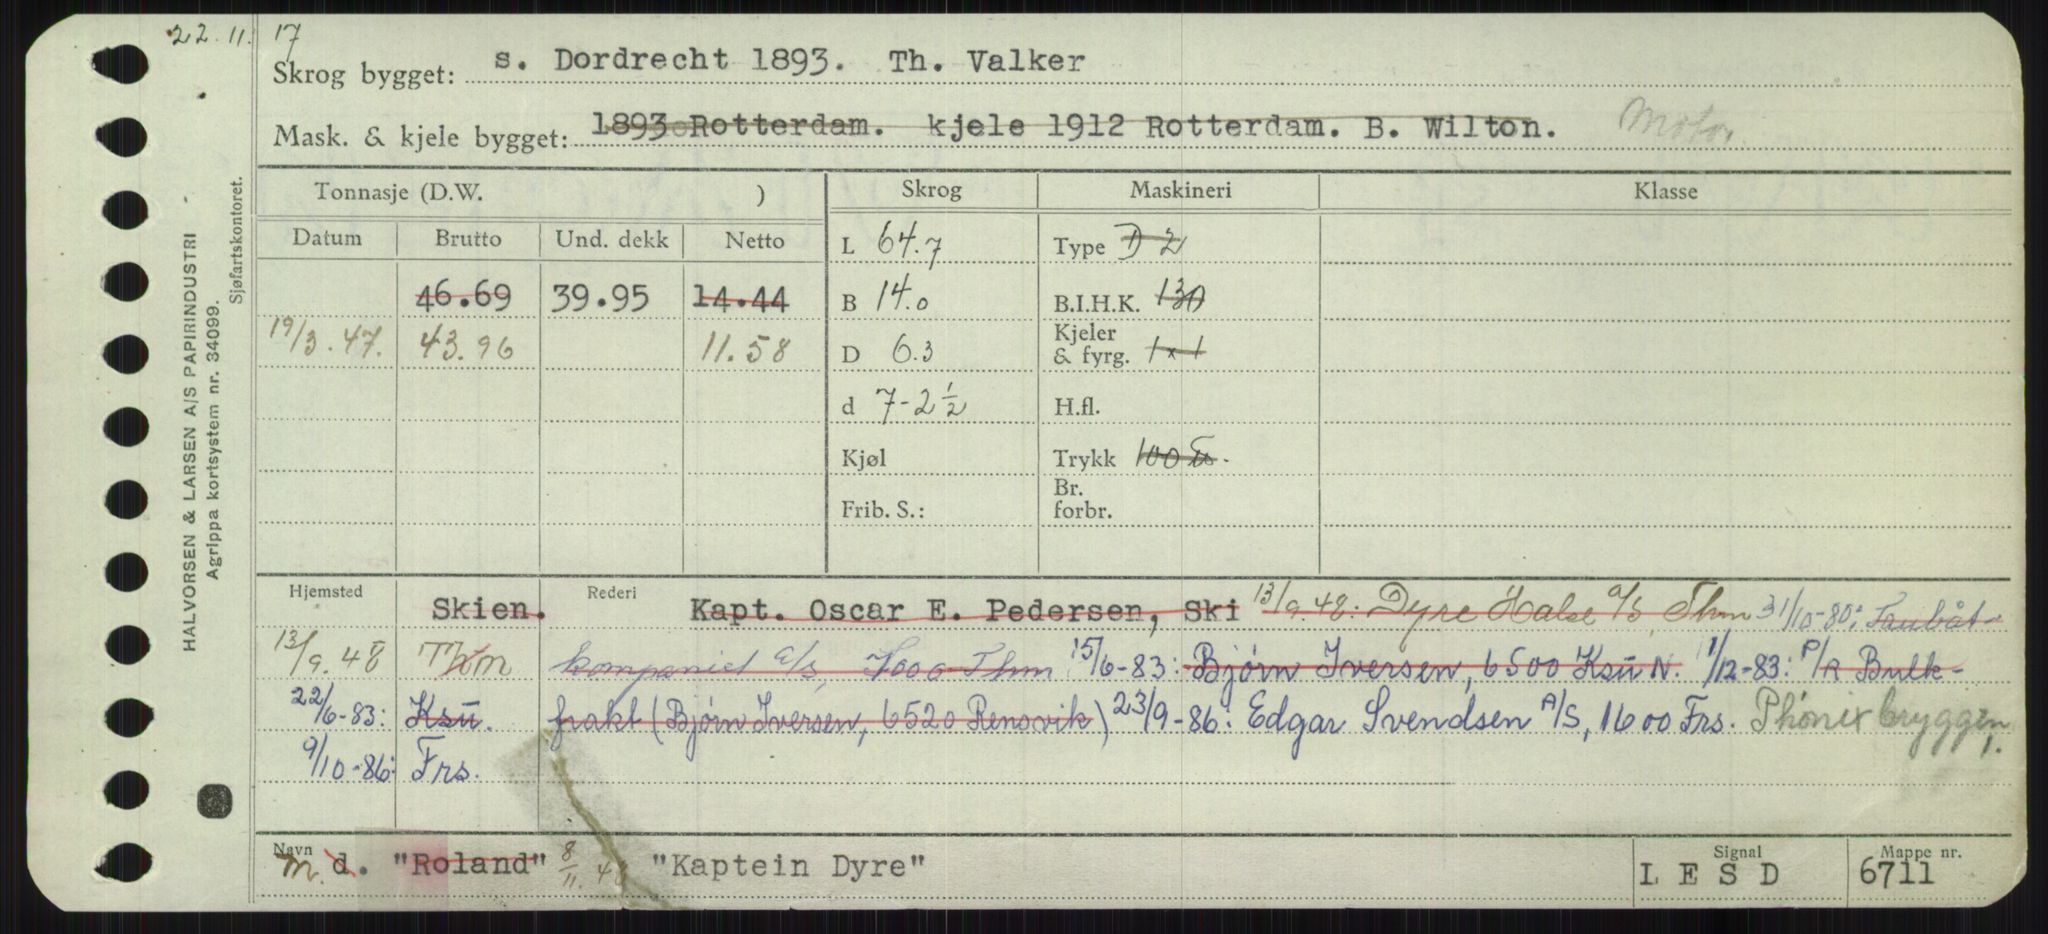 22.11.17
Skrog bygget: s. Dordrecht 1893. Th. Valker
Mask. & kjele bygget: 1893 Rotterdam. kjele 1912 Rotterdam. B. Wilton. Motor
HALVORSEN & LARSEN A/S PAPIRINDUSTRI
Agrippa kortsystem nr. 34099.
Sjøfartskontoret.
Tonnasje (D.W. ) Skrog Maskineri Klasse
Datum Brutto Und. dekk Netto L 64.7 Type D 2
46.69 39.95 14.44 B 14.0 B.I.H.K. 130
19/3.47. 43.96 11.58 D 6.3 Kjeler & fyrg. 1x1
d 7-2½ H.fl.
Kjøl Trykk 100
Frib. S.: Br. forbr.
Hjemsted Skien. Rederi Kapt. Oscar E. Pedersen, Ski 13/9.48: Dyre Halse a/s, Thm 31/10-80: Taubåt-
13/9.48 Thm kompaniet a/s, 7000 Thm 15/6-83: Bjørn Iversen, 6500 Ksū N. 1/12-83: P/R Bulk-
22/6-83: Ksū. frakt (Bjørn Iversen, 6520 Rensvik) 23/9-86: Edgar Svendsen A/S, 1600 Frs. Phønix bryggen,
9/10-86: Frs.
Navn m. d. "Roland" 8/11.48 "Kaptein Dyre" Signal L E S D Mappe nr. 6711